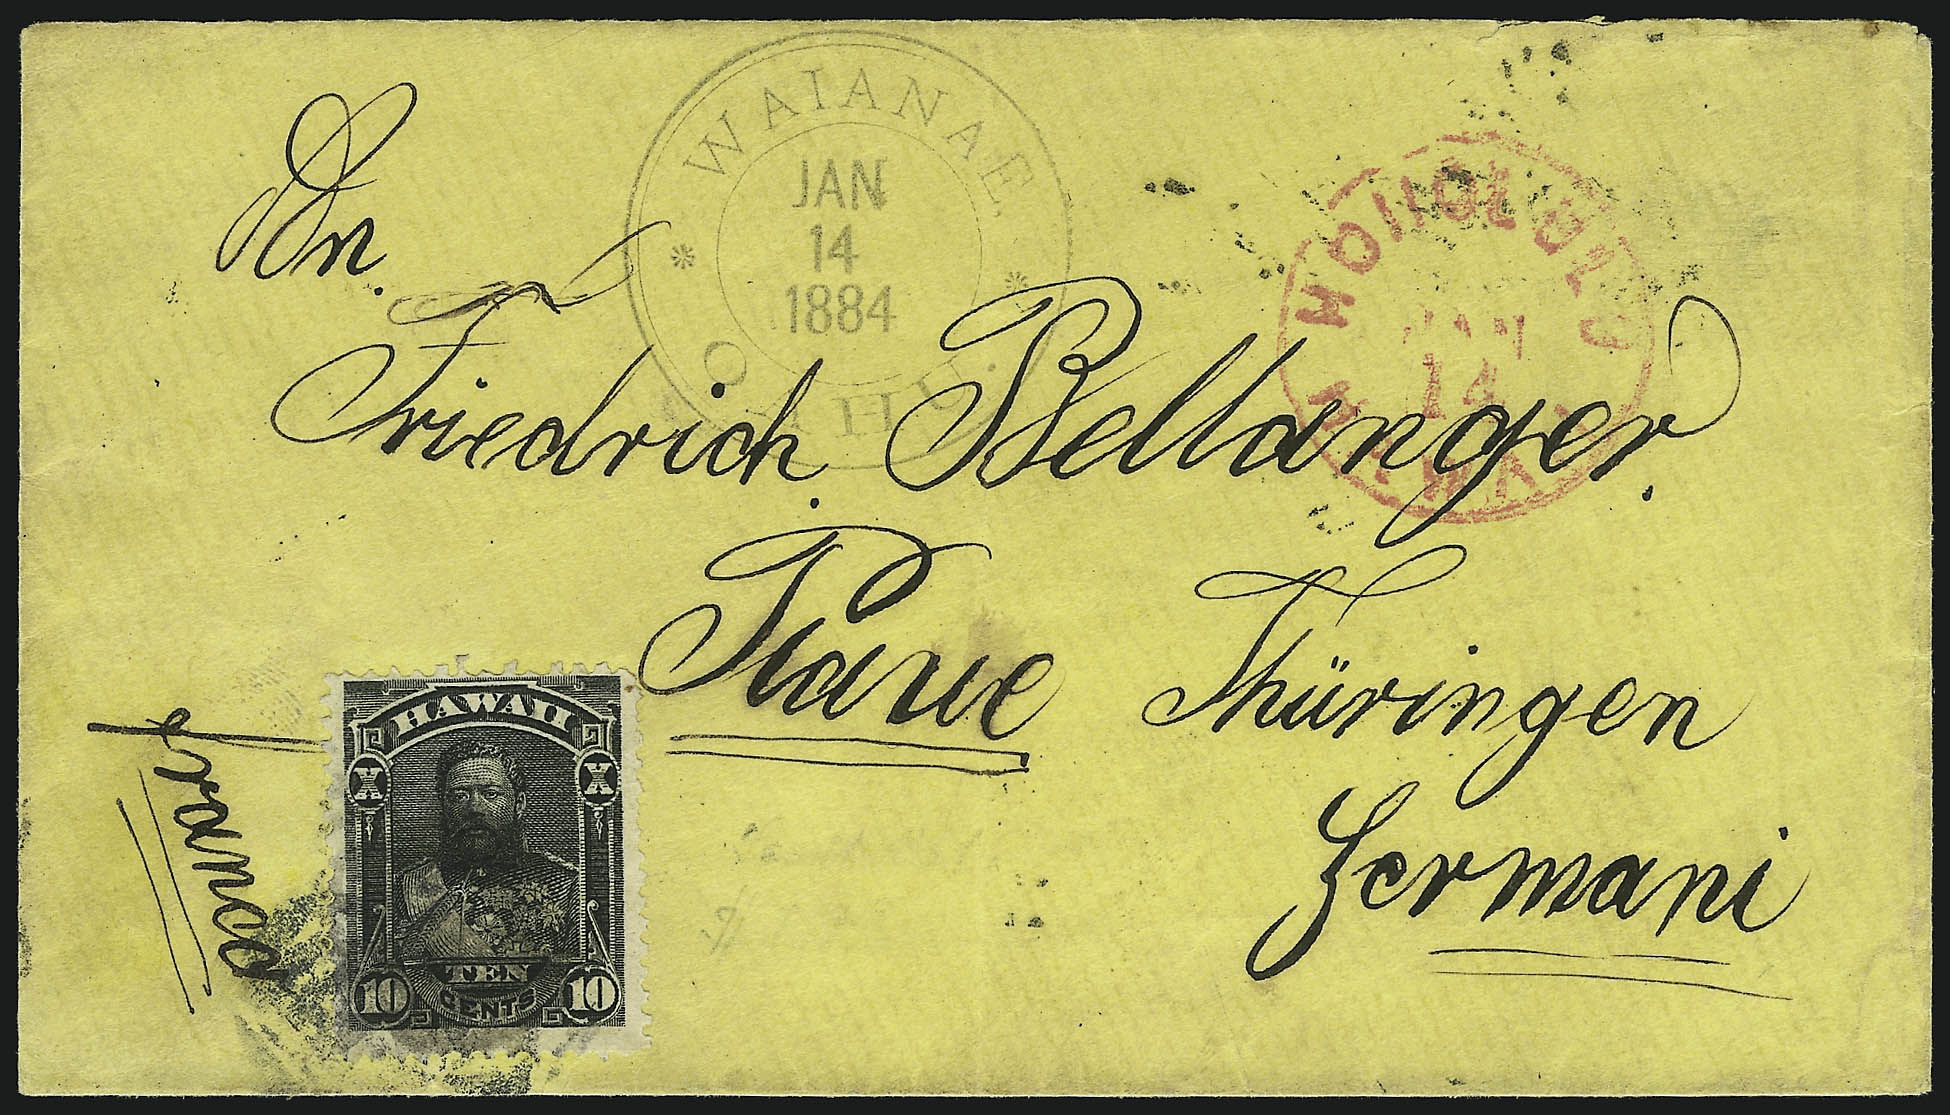 WAIANAE.
JAN
14
1884
OAHU.
HONOLULU
JAN
14
HAWAII
Hn.
Friedrich Bellanger.
Plaue Thüringen
Germani
franco
HAWAII
X X
10 TEN 10
CENTS